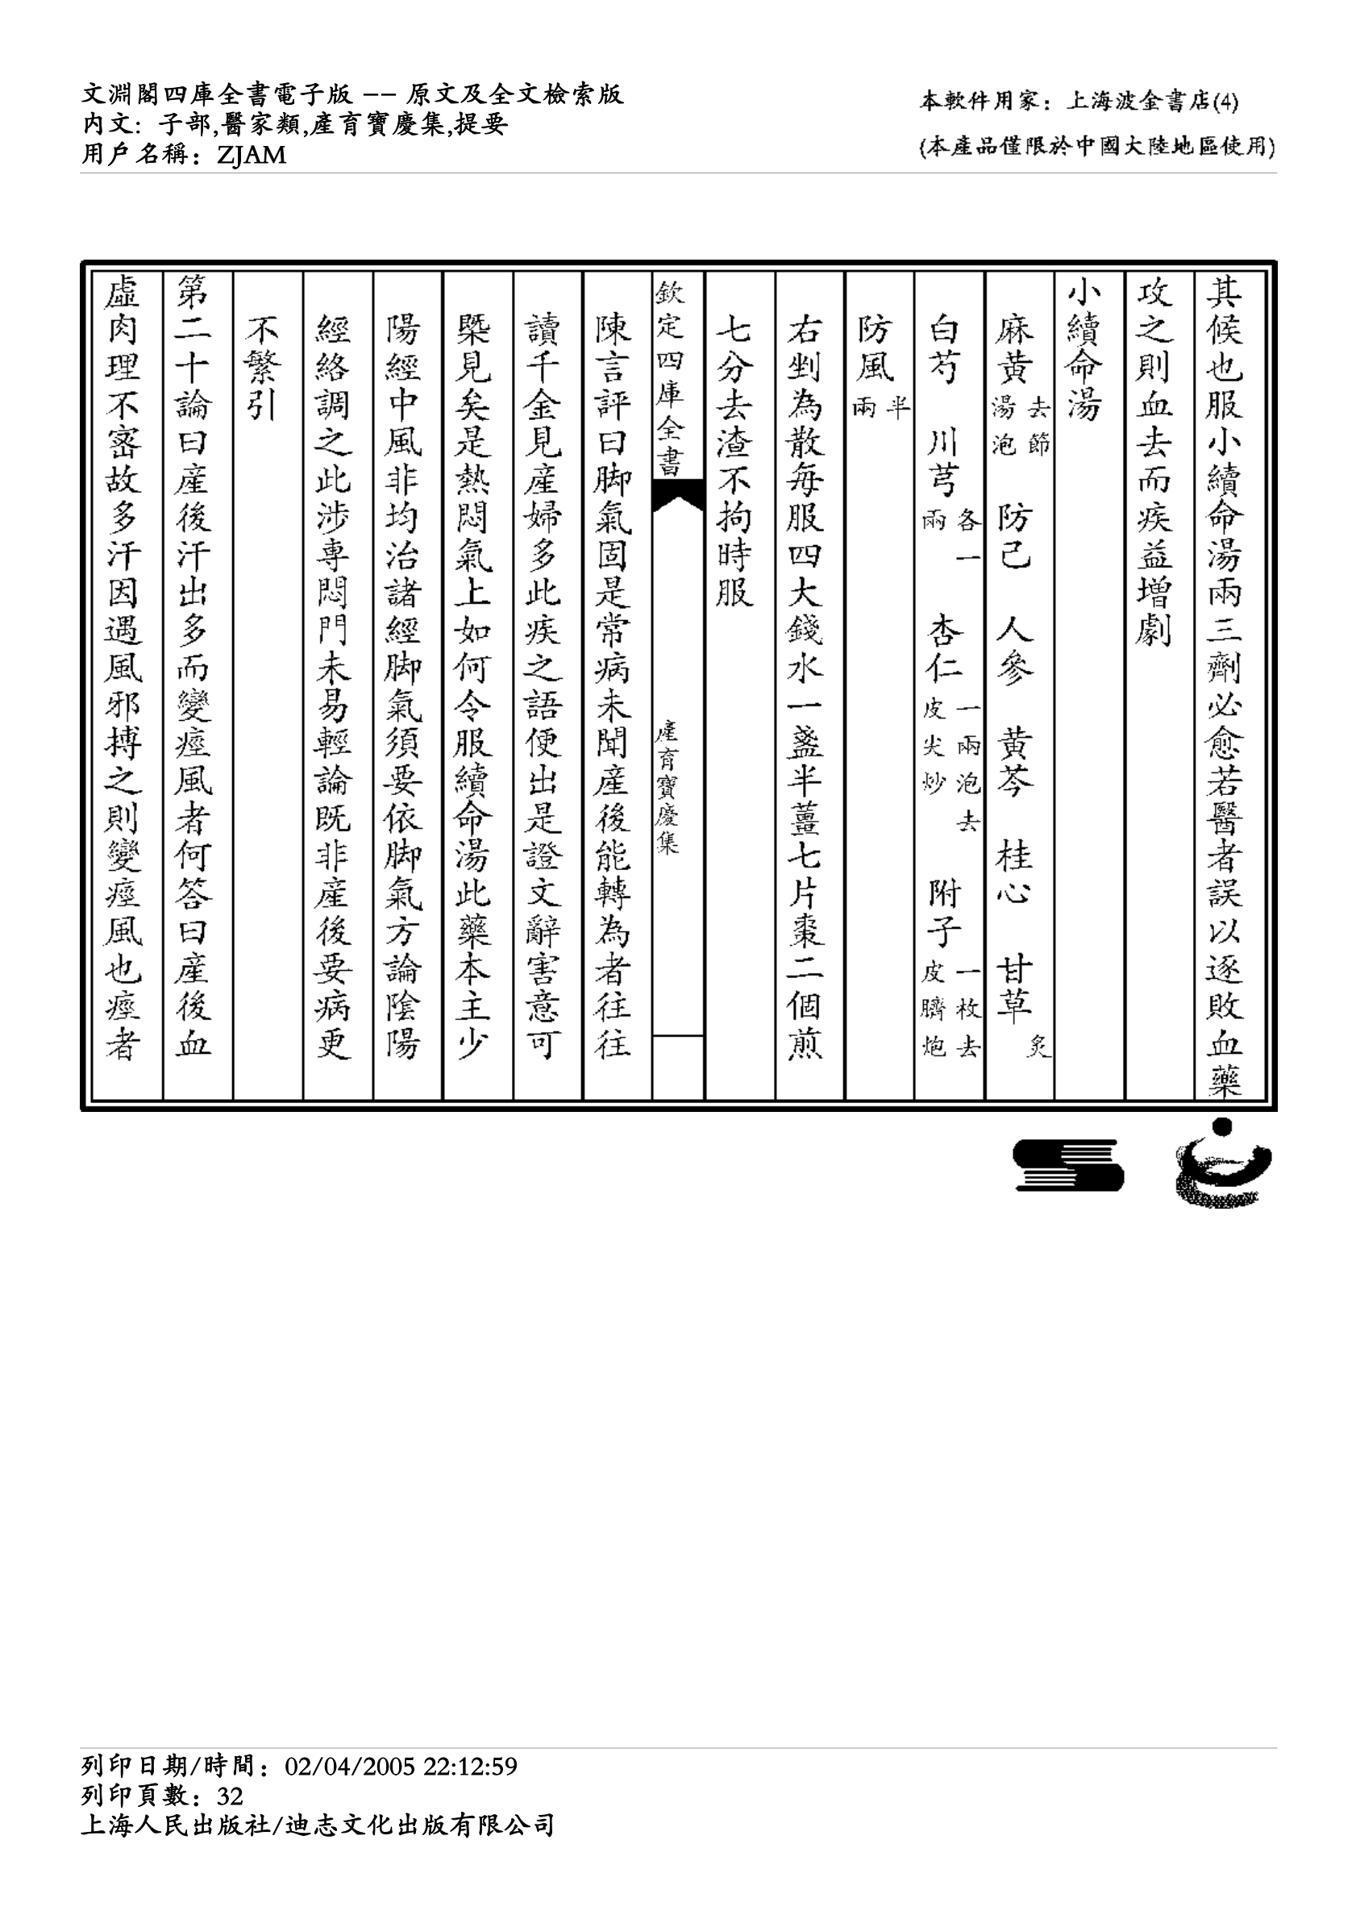 文淵閣四庫全書電子版 －－ 原文及全文檢索版
内文：子部,醫家類,產育寶慶集,提要
用戶名稱：ZJAM
本軟件用家：上海波金書店(4)
(本產品僅限於中國大陸地區使用)
其候也服小續命湯兩三劑必愈若醫者誤以逐敗血藥
攻之則血去而疾益增劇
小續命湯
麻黃去節湯泡 防己 人參 黃芩 桂心 甘草炙
白芍 川芎各一兩 杏仁一兩泡去皮尖炒 附子一枚去皮臍炮
防風半兩
右剉為散每服四大錢水一盞半薑七片棗二個煎
七分去渣不拘時服
欽定四庫全書 產育寶慶集
陳言評曰脚氣固是常病未聞産後能轉為者往往
讀千金見産婦多此疾之語便出是證文辭害意可
槩見矣是熱悶氣上如何令服續命湯此藥本主少
陽經中風非均治諸經脚氣須要依脚氣方論陰陽
經絡調之此涉專悶門未易輕論既非産後要病更
不繁引
第二十論曰産後汗出多而變痙風者何答曰産後血
虛肉理不宻故多汗因遇風邪搏之則變痙風也痙者
列印日期/時間：02/04/2005 22:12:59
列印頁數：32
上海人民出版社/迪志文化出版有限公司